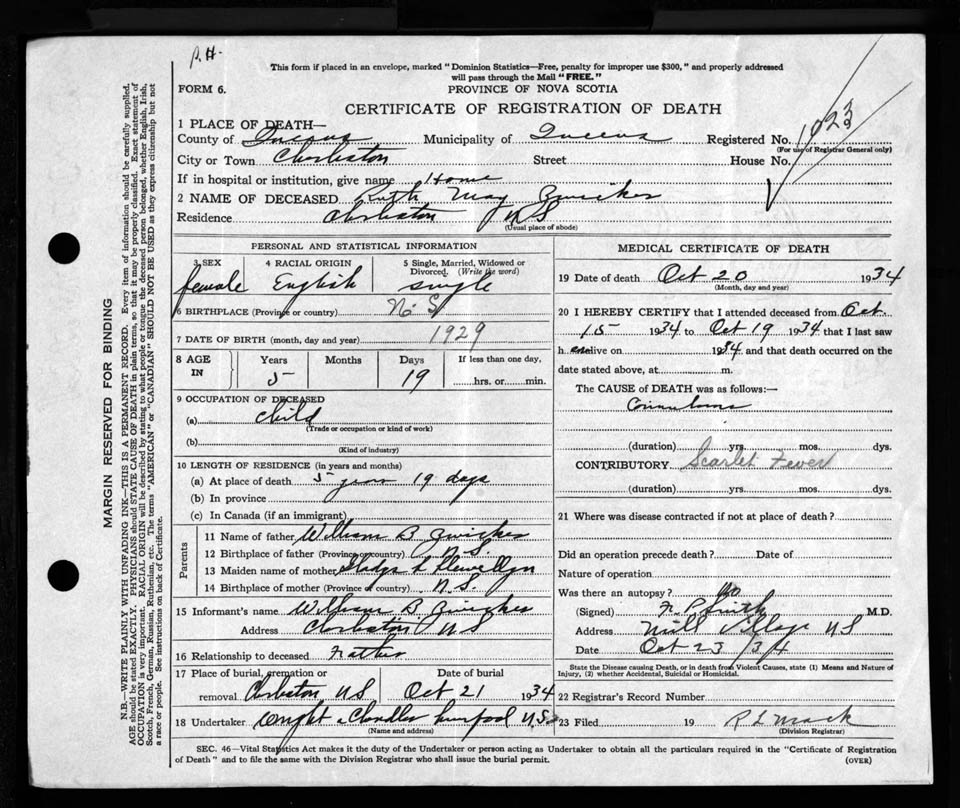 P.H.
This form if placed in an envelope, marked "Dominion Statistics—Free, penalty for improper use $300," and properly addressed
will pass through the Mail "FREE."
FORM 6. PROVINCE OF NOVA SCOTIA
CERTIFICATE OF REGISTRATION OF DEATH
1 PLACE OF DEATH—
County of Queens Municipality of Queens Registered No. 1023
(For use of Registrar General only)
City or Town Charleston Street House No.
If in hospital or institution, give name Home
2 NAME OF DECEASED Ruth May Zwicker
Residence Charleston N S
(Usual place of abode)
PERSONAL AND STATISTICAL INFORMATION
3 SEX 4 RACIAL ORIGIN 5 Single, Married, Widowed or
Divorced. (Write the word)
female English single
6 BIRTHPLACE (Province or country) N. S
7 DATE OF BIRTH (month, day and year) 1929
8 AGE IN Years Months Days If less than one day,
5 19 hrs. or min.
9 OCCUPATION OF DECEASED
(a) child
(Trade or occupation or kind of work)
(b)
(Kind of industry)
10 LENGTH OF RESIDENCE (in years and months)
(a) At place of death 5 years 19 days
(b) In province
(c) In Canada (if an immigrant)
Parents
11 Name of father William B Zwicker
12 Birthplace of father (Province or country) N.S.
13 Maiden name of mother Gladys L Llewellyn
14 Birthplace of mother (Province or country) N.S.
15 Informant's name William B Zwicker
Address Charleston N S
16 Relationship to deceased Father
17 Place of burial, cremation or Date of burial
removal Charleston N S Oct 21 1934
18 Undertaker Wright & Chandler Liverpool N.S.
(Name and address)
MEDICAL CERTIFICATE OF DEATH
19 Date of death Oct 20 1934
(Month, day and year)
20 I HEREBY CERTIFY that I attended deceased from Oct
15 1934 to Oct 19 1934 that I last saw
h er alive on 1934 and that death occurred on the
date stated above, at m.
The CAUSE of DEATH was as follows:—
Convulsions
(duration) yrs. mos. dys.
CONTRIBUTORY Scarlet Fever
(duration) yrs. mos. dys.
21 Where was disease contracted if not at place of death?
Did an operation precede death? Date of
Nature of operation
Was there an autopsy? No
(Signed) F. P. Smith M.D.
Address Mill Village N S
Date Oct 23 / 34
State the Disease causing Death, or in death from Violent Causes, state (1) Means and Nature of
Injury, (2) whether Accidental, Suicidal or Homicidal.
22 Registrar's Record Number
23 Filed 19 R L Mack
(Division Registrar)
SEC. 46—Vital Statistics Act makes it the duty of the Undertaker or person acting as Undertaker to obtain all the particulars required in the "Certificate of Registration
of Death" and to file the same with the Division Registrar who shall issue the burial permit. (OVER)
MARGIN RESERVED FOR BINDING
N.B.—WRITE PLAINLY WITH UNFADING INK—THIS IS A PERMANENT RECORD. Every item of information should be carefully supplied.
AGE should be stated EXACTLY. PHYSICIANS should STATE CAUSE OF DEATH in plain terms, so that it may be properly classified. Exact statement of
OCCUPATION is very important. RACIAL ORIGIN will be described by stating to what people or tongue the deceased person belonged, whether English, Irish,
Scotch, French, German, Russian, Ruthenian, etc. The terms "AMERICAN" or "CANADIAN" SHOULD NOT BE USED as they express citizenship but not
a race or people. See instructions on back of Certificate.